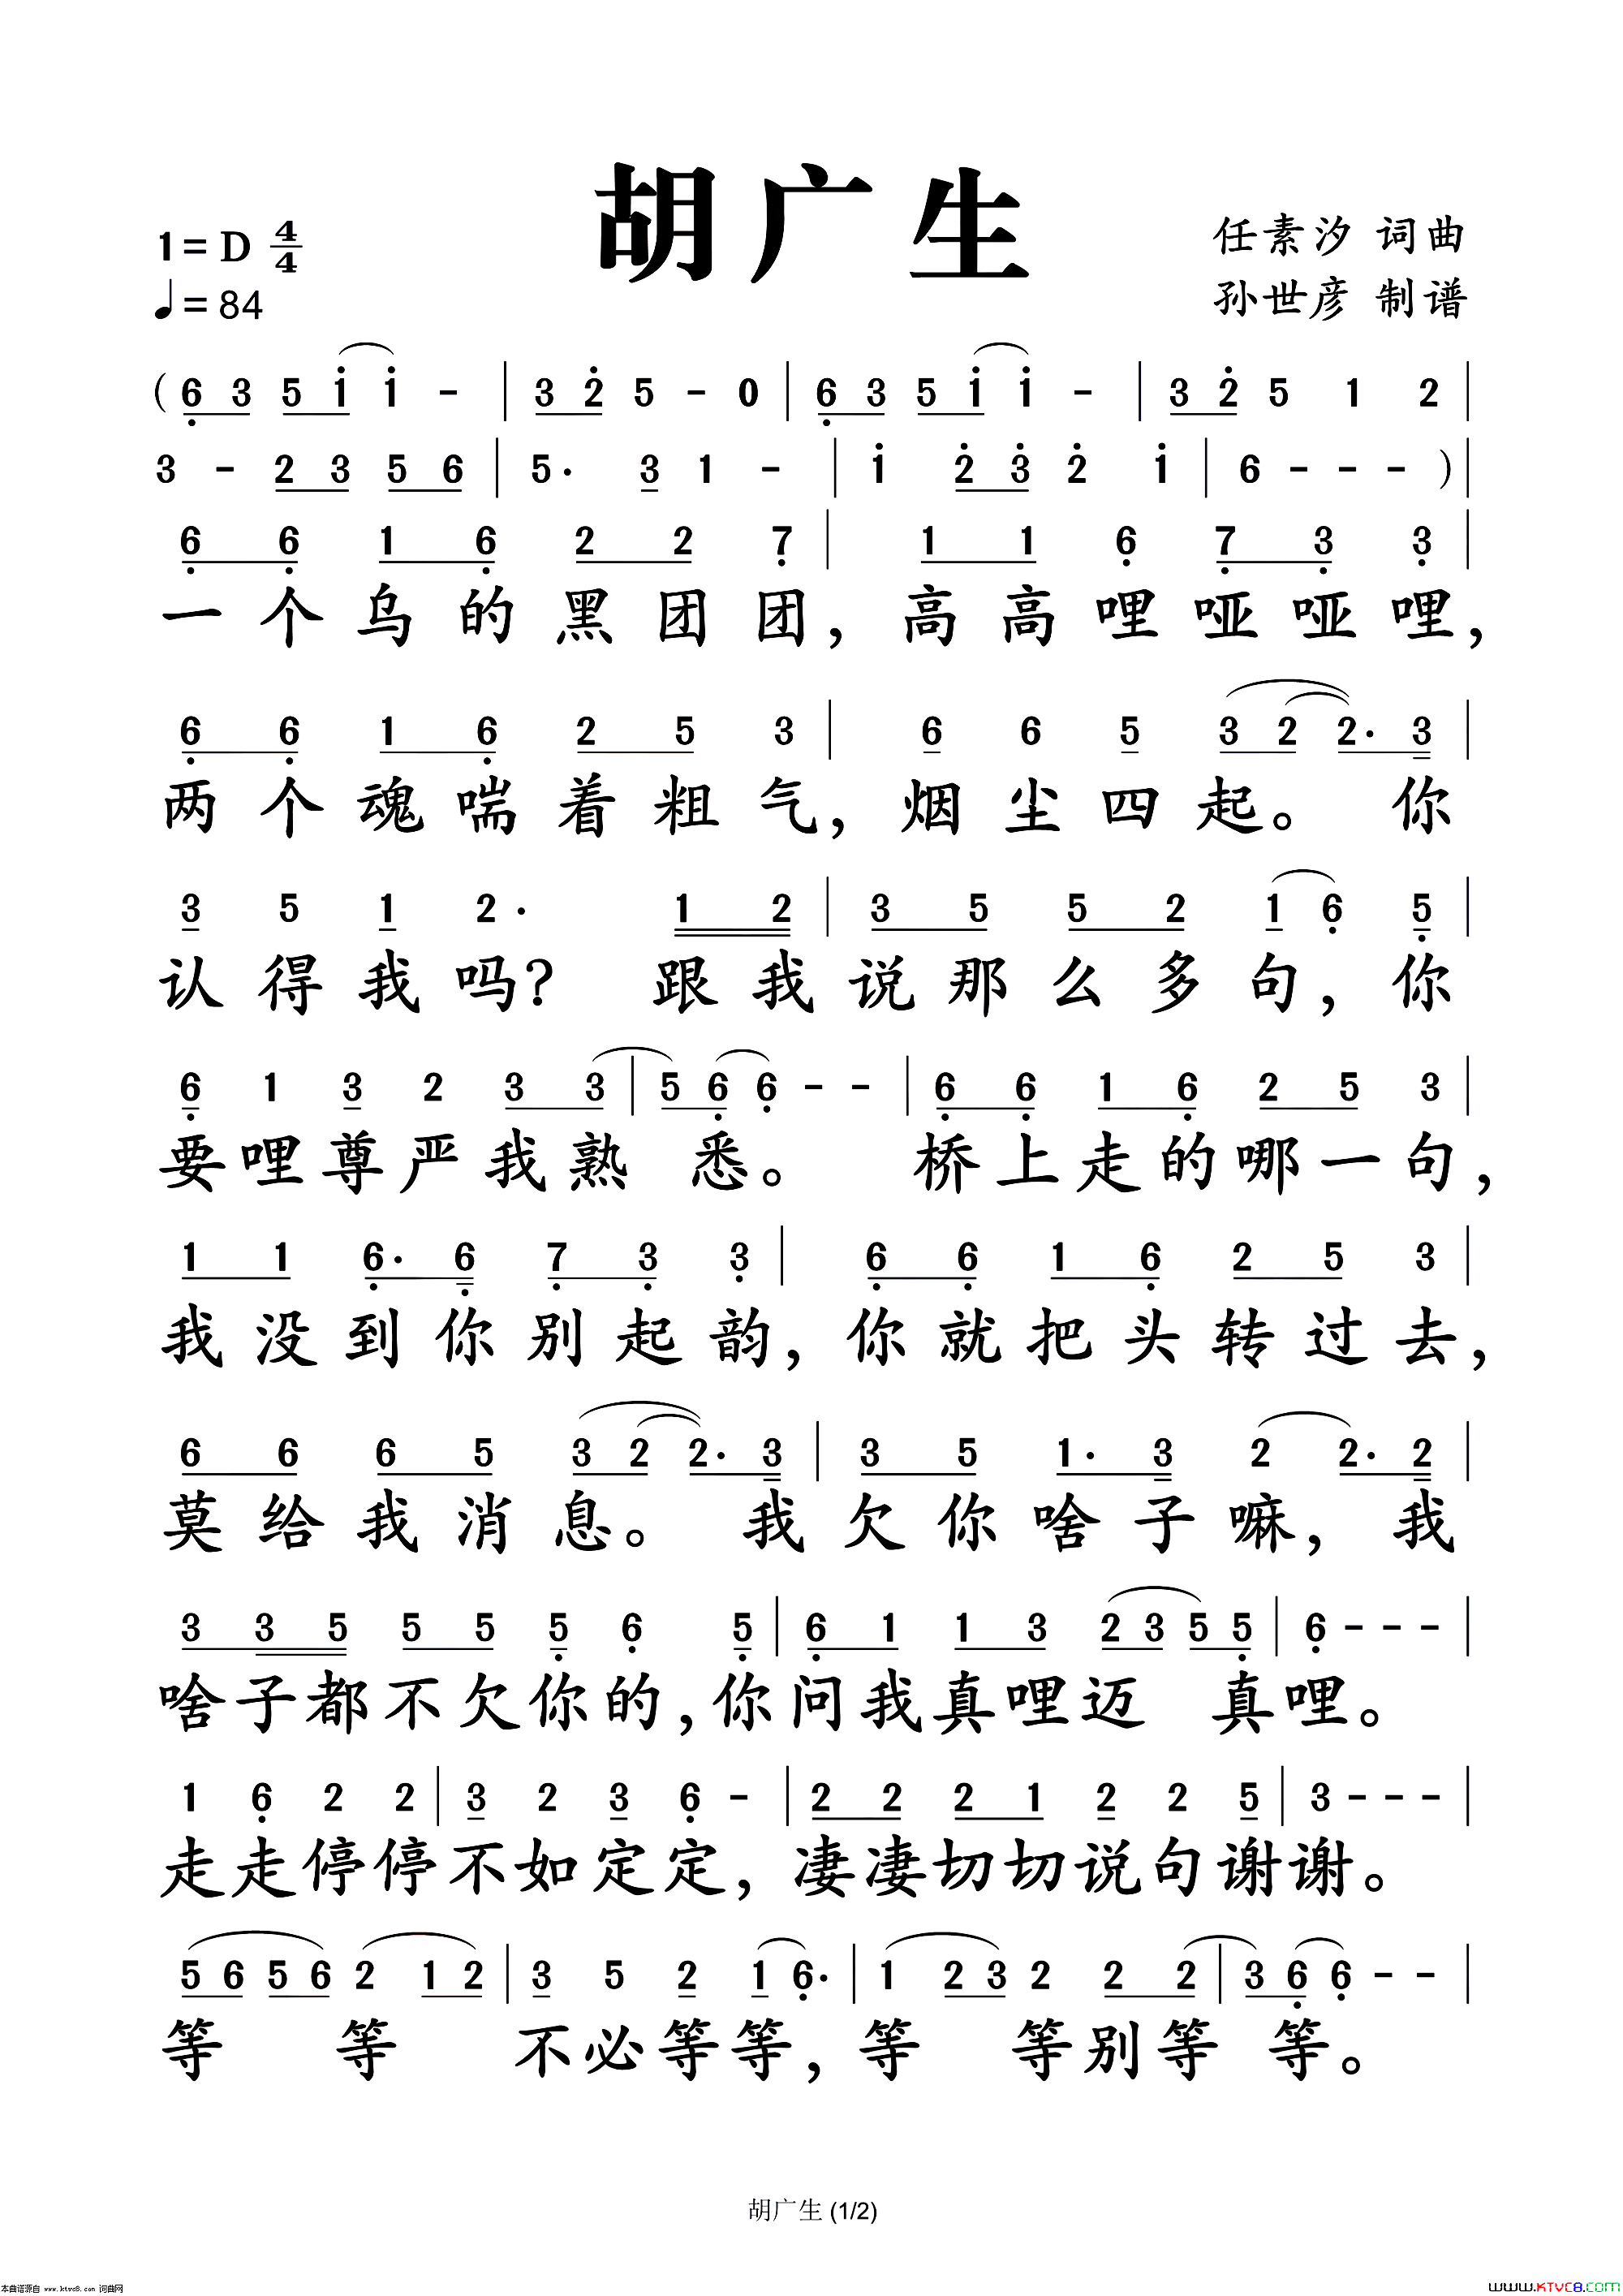 胡广生
1=D 4/4
♩=84
任素汐 词曲
孙世彦 制谱
(6̣ 3 5 1̇ 1̇ - | 3 2̇ 5 - 0 | 6̣ 3 5 1̇ 1̇ - | 3 2̇ 5 1 2 |
3 - 2 3 5 6 | 5. 3 1 - | 1̇ 2̇ 3̇ 2̇ 1̇ | 6 - - - ) |
6̣ 6̣ 1 6̣ 2 2 7̣ | 1 1 6̣ 7̣ 3̣ 3̣ |
一个乌的黑团团，高高哩哑哑哩，
6̣ 6̣ 1 6̣ 2 5 3 | 6 6 5 3 2 2. 3 |
两个魂喘着粗气，烟尘四起。 你
3 5 1 2. 1 2 | 3 5 5 2 1 6̣ 5̣ |
认得我吗？ 跟我说那么多句，你
6̣ 1 3 2 3 3 | 5 6̣ 6̣ - - | 6̣ 6̣ 1 6̣ 2 5 3 |
要哩尊严我熟 悉。 桥上走的哪一句，
1 1 6̣. 6̣ 7̣ 3̣ 3̣ | 6̣ 6̣ 1 6̣ 2 5 3 |
我没到你别起韵，你就把头转过去，
6 6 6 5 3 2 2. 3 | 3 5 1. 3 2 2. 2 |
莫给我消息。 我欠你啥子嘛，我
3 3 5 5 5 5̣ 6̣ 5̣ | 6̣ 1 1 3 2 3 5 5̣ | 6̣ - - - |
啥子都不欠你的，你问我真哩迈 真哩。
1 6̣ 2 2 | 3 2 3 6̣ - | 2 2 2 1 2 2 5 | 3 - - - |
走走停停不如定定，凄凄切切说句谢谢。
5 6 5 6 2 1 2 | 3 5 2 1 6̣. | 1 2 3 2 2 2 | 3 6̣ 6̣ - - |
等 等 不必等等，等 等别等 等。
胡广生 (1/2)
本曲谱源自 www.ktvc8.com 词曲网
www.KTVC8.com